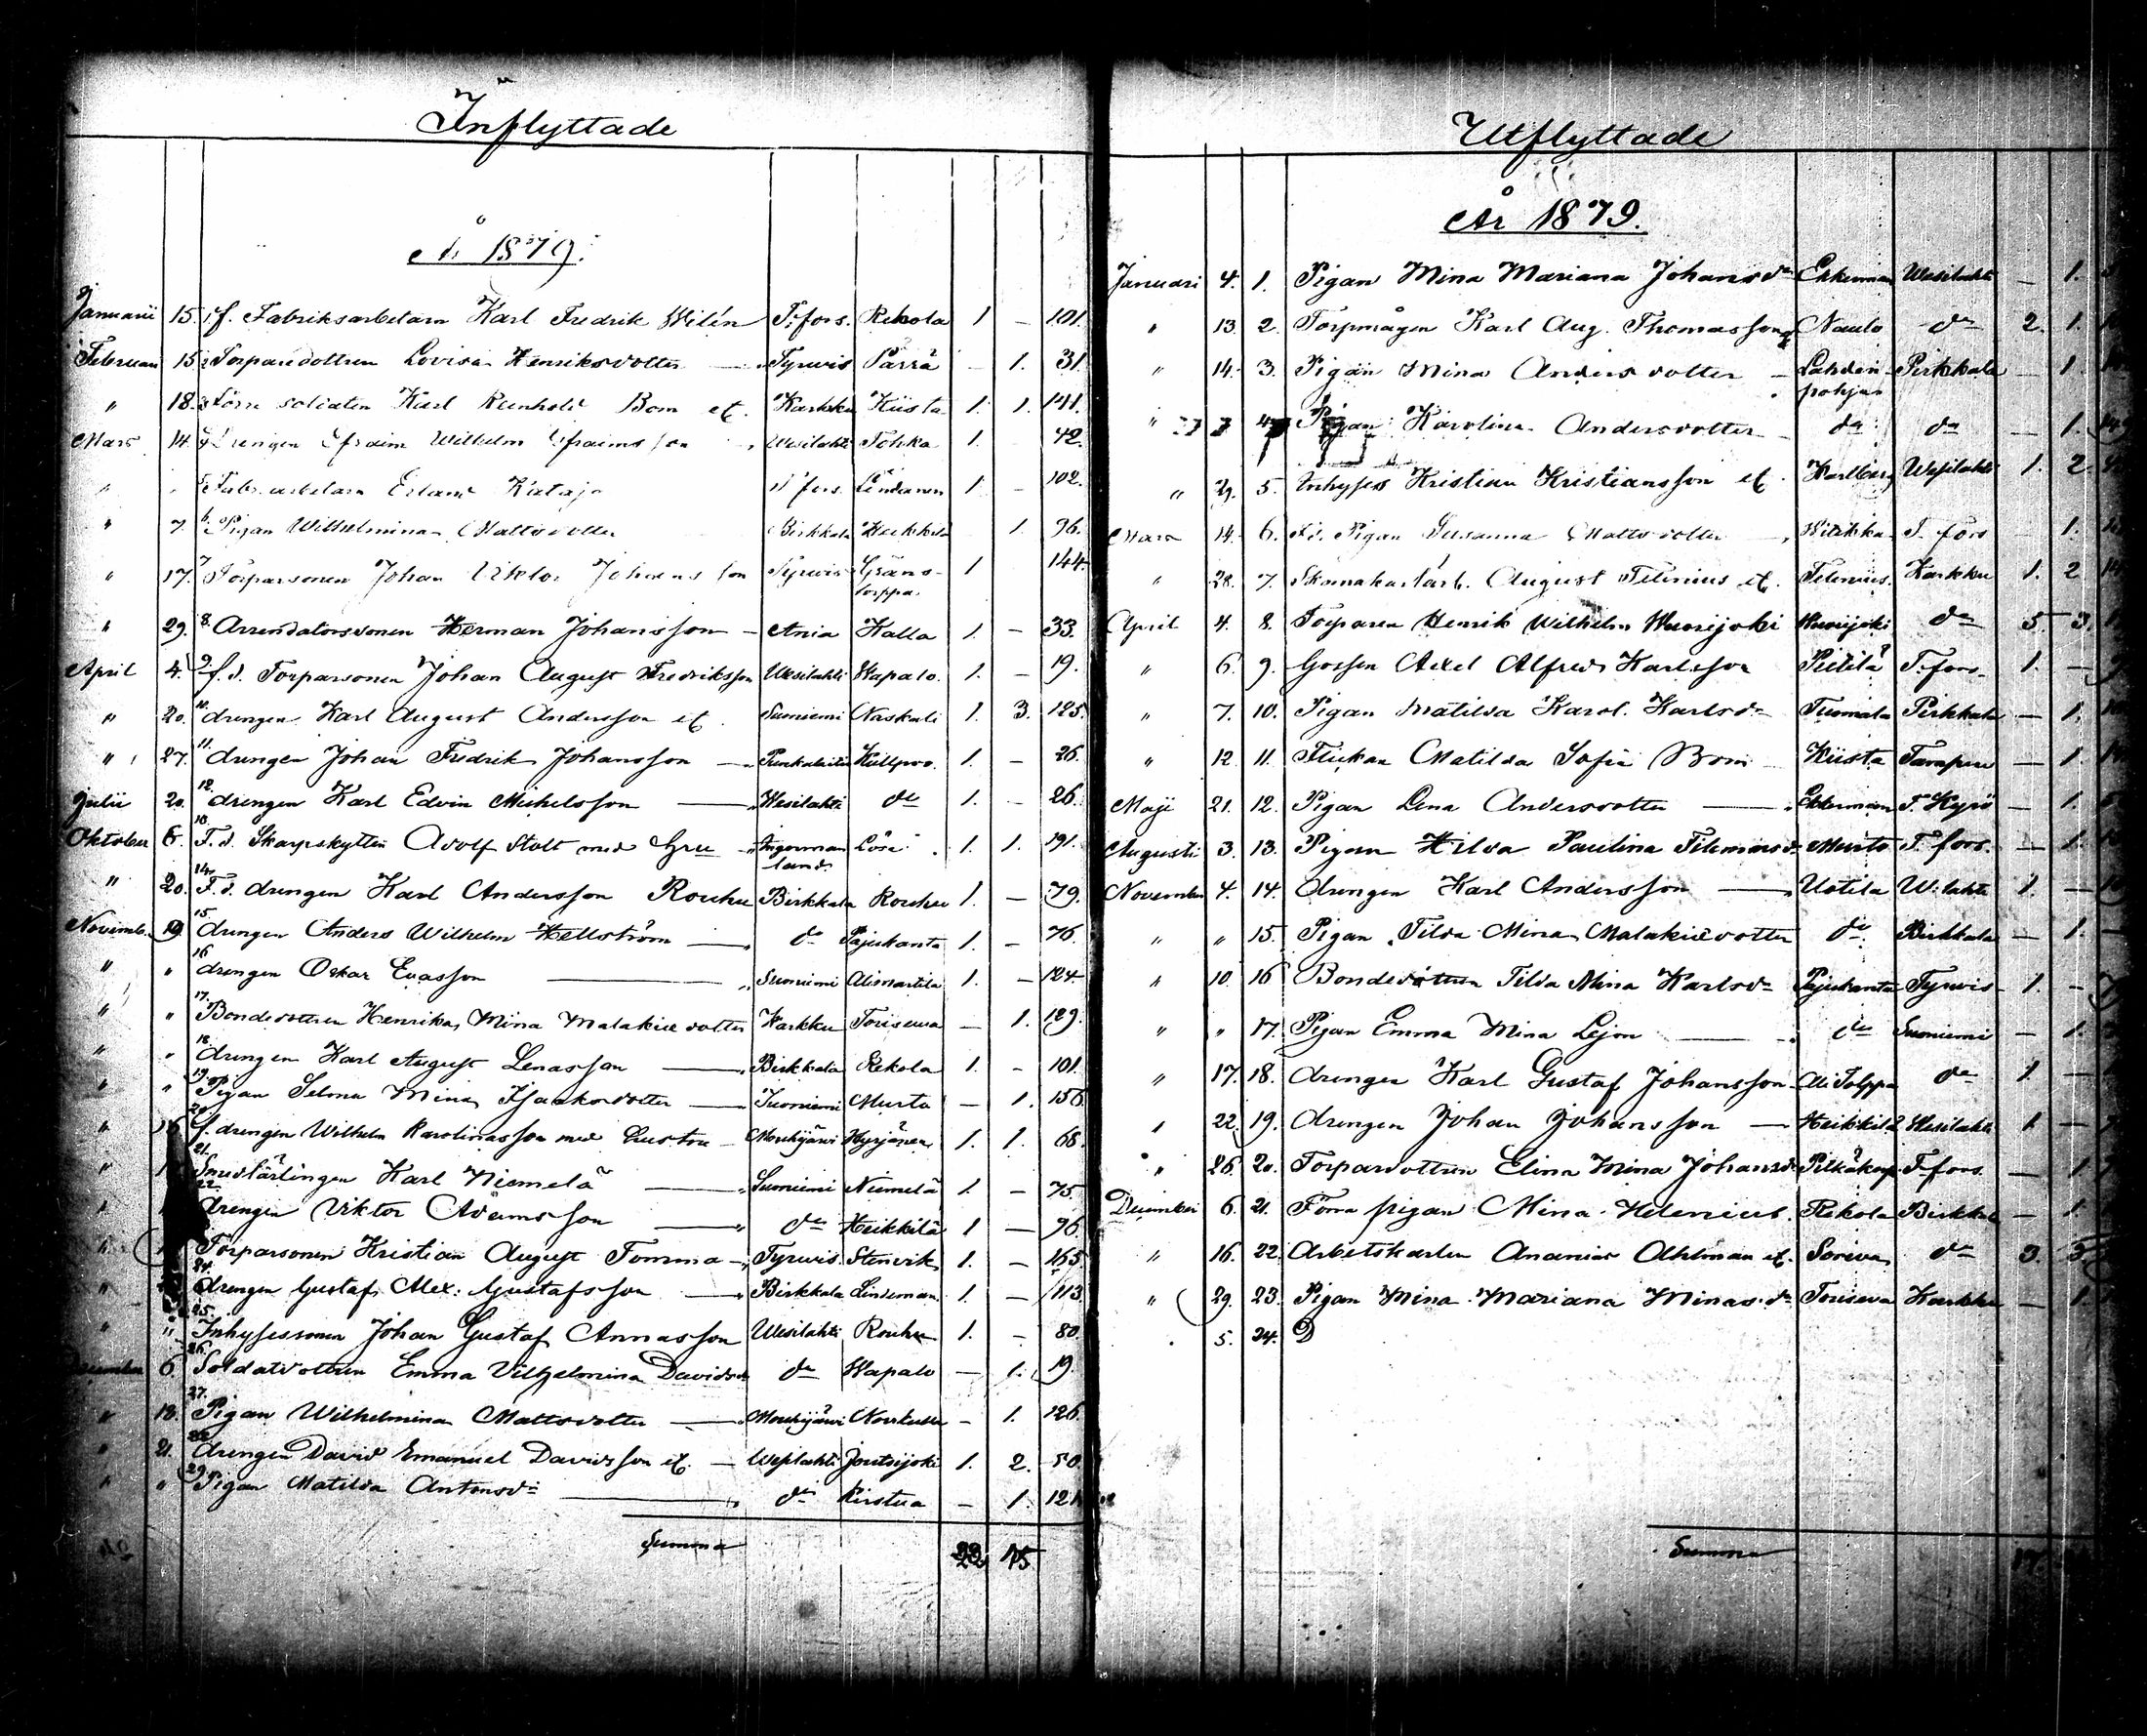 Inflyttade
År 1879.
Januarii 15. 1. f. Fabriksarbetaren Karl Fredrik Wilén T:fors. Rekola 1 – 101.
Februari 15 2 Torparedottren Lovisa Henriksdotter Tyrvis Pärrä – 1. 31.
" 18. 3 Förre soldaten Karl Reinhold Bom et. Karkku Kiista 1. 1. 141.
Mars 14. 4 Drengen Efraim Wilhelm Efraimsson Wesilahti Tohka 1. 42.
" 5 Fabr. arbetaren Erland Kataja T:fors. Lindeman 1. – 102.
" 7 6. Pigan Wilhelmina Mattsdotter Birkkala Heikkilä 1. 96.
" 17. 7 Torparsonen Johan Viktor Johansson Tyrvis Gränstorppa. 1 144.
" 29. 8. Arrendatorssonen Herman Johansson – Ania Halla 1. – 33.
April 4. 9. f.d. Torparsonen Johan August Fredriksson Wesilahti Hapalo. 1. – 19.
" 20. 10. drengen Karl August Andersson et. Suniemi Naskali 1. 3. 125.
" 27. 11. drengen Johan Fredrik Johansson Punkalaitio Hüllpoo. 1. – 26.
Julii 20. 12. drengen Karl Edvin Mickelsson Wesilahti do 1. – 26.
Oktober 6. 13. F.d. Skarpskytten Adolf Stolt med Hru Ingermanland. Lösi 1. 1. 191.
" 20. 14. F.d. drengen Karl Andersson Rouhu Birkkala Rouhu 1. – 79.
Novemb. 10 15. drengen Anders Wilhelm Hellström do Pajukanta 1. – 76.
" " 16 drengen Oskar Evasson Suoniemi Alismartila 1. – 124.
" " 17. Bondedottren Henrika Mina Malakiedotter Karkku Toriseva – 1. 129.
" " 18. drengen Karl August Lenasson Birkkala Rekola 1. – 101.
" " 19. Pigan Selma Mina Isaksdotter Suoniemi Murto – 1. 156.
" 16 20. f. drengen Wilhelm Karolinasson med hustru Mouhijärvi Hyrjänen 1. 1. 68.
" 21. Smedlärlingen Karl Niemelä Suoniemi Niemelä 1. – 75.
22. drengen Viktor Adamsson do Heikkilä 1 – 96.
Torparsonen Kristian August Tomma Tyrvis Stenvik 1. – 165.
" 24. drengen Gustaf Alex. Gustafsson Birkkala Lindeman 1. – 113.
" " 25. Inhysessonen Johan Gustaf Annasson Wesilahti Rouhu 1. – 80.
December 6. 26. Soldatdottren Emma Vilhelmina Davidsd. do Hapalo – 1. 19.
" 18. 27. Pigan Wilhelmina Mattsdotter Mouhijärvi Novkulla – 1. 126.
" 21. 28. drengen David Emanuel Davidsson et. – Wesilahti Joutsijoki 1. 2. 50.
" " 29. Pigan Matilda Antonsdr. do Kirstua – 1. 121.
Summa 22 15
Utflyttade
År 1879.
Januari 4. 1. Pigan Mina Mariana Johansdr Ekerman Wesilahti – 1.
" 13. 2. Torpmågen Karl Aug. Thomasson et Naulo do 2. 1.
" 14. 3. Pigan Mina Andersdotter – Lahdenpohja Pirkkala – 1.
" 4. Pigan Karolina Andersdotter – do do – 1.
" 29. 5. Inhyses Kristian Kristiansson et. Karlberg Wesilahti 1. 2.
Mars 14. 6. F.d. Pigan Susanna Mattsdotter Witikka T. fors 1.
" 28. 7. Skomakarlärl. August Filenius et. Filenius. Karkku 1. 2
April 4. 8. Torparen Henrik Wilhelm Wuorijoki Wuorijoki do 5. 3.
" 6. 9. Gossen Axel Alfred Karlsson Pietilä T:fors. 1. –
" 7. 10. Pigan Matilda Karol. Karlsdr Tuomala Pirkkala – 1.
" 12. 11. Flickan Matilda Sofia Bom Kiista Tampere – 1
Maji 21. 12. Pigan Lena Andersdotter Ekerman T. Kyrö – 1.
Augusti 3. 13. Pigan Hilda Paulina Fileminsdr Murto T.fors. – 1.
November 4. 14. drengen Karl Andersson Uotila W:lahti 1. –
" " 15. Pigan Tilda Mina Malakiedotter do Birkkala – 1.
" 10. 16 Bondedottren Tilda Mina Karlsdr Pajukanta Tyrvis 1. –
" " 17. Pigan Emma Mina Lejon do Suoniemi – 1.
" 17. 18. drengen Karl Gustaf Johansson Ali Tolppa do 1. –
" 22. 19. drengen Johan Johansson – Heikkilä Wesilahti 1. –
" 26. 20. Torpardottren Elina Mina Johansdr T.fors. – 1.
December 6. 21. Förra pigan Mina Helenius. Rekola Birkkala – 1.
" 16. 22. Arbetskarlen Ananias Ahlman et. Soriva do 3. 3.
" 29. 23. Pigan Mina Mariana Minasdr Toriseva Karkku – 1.
5. 24. D
Summa